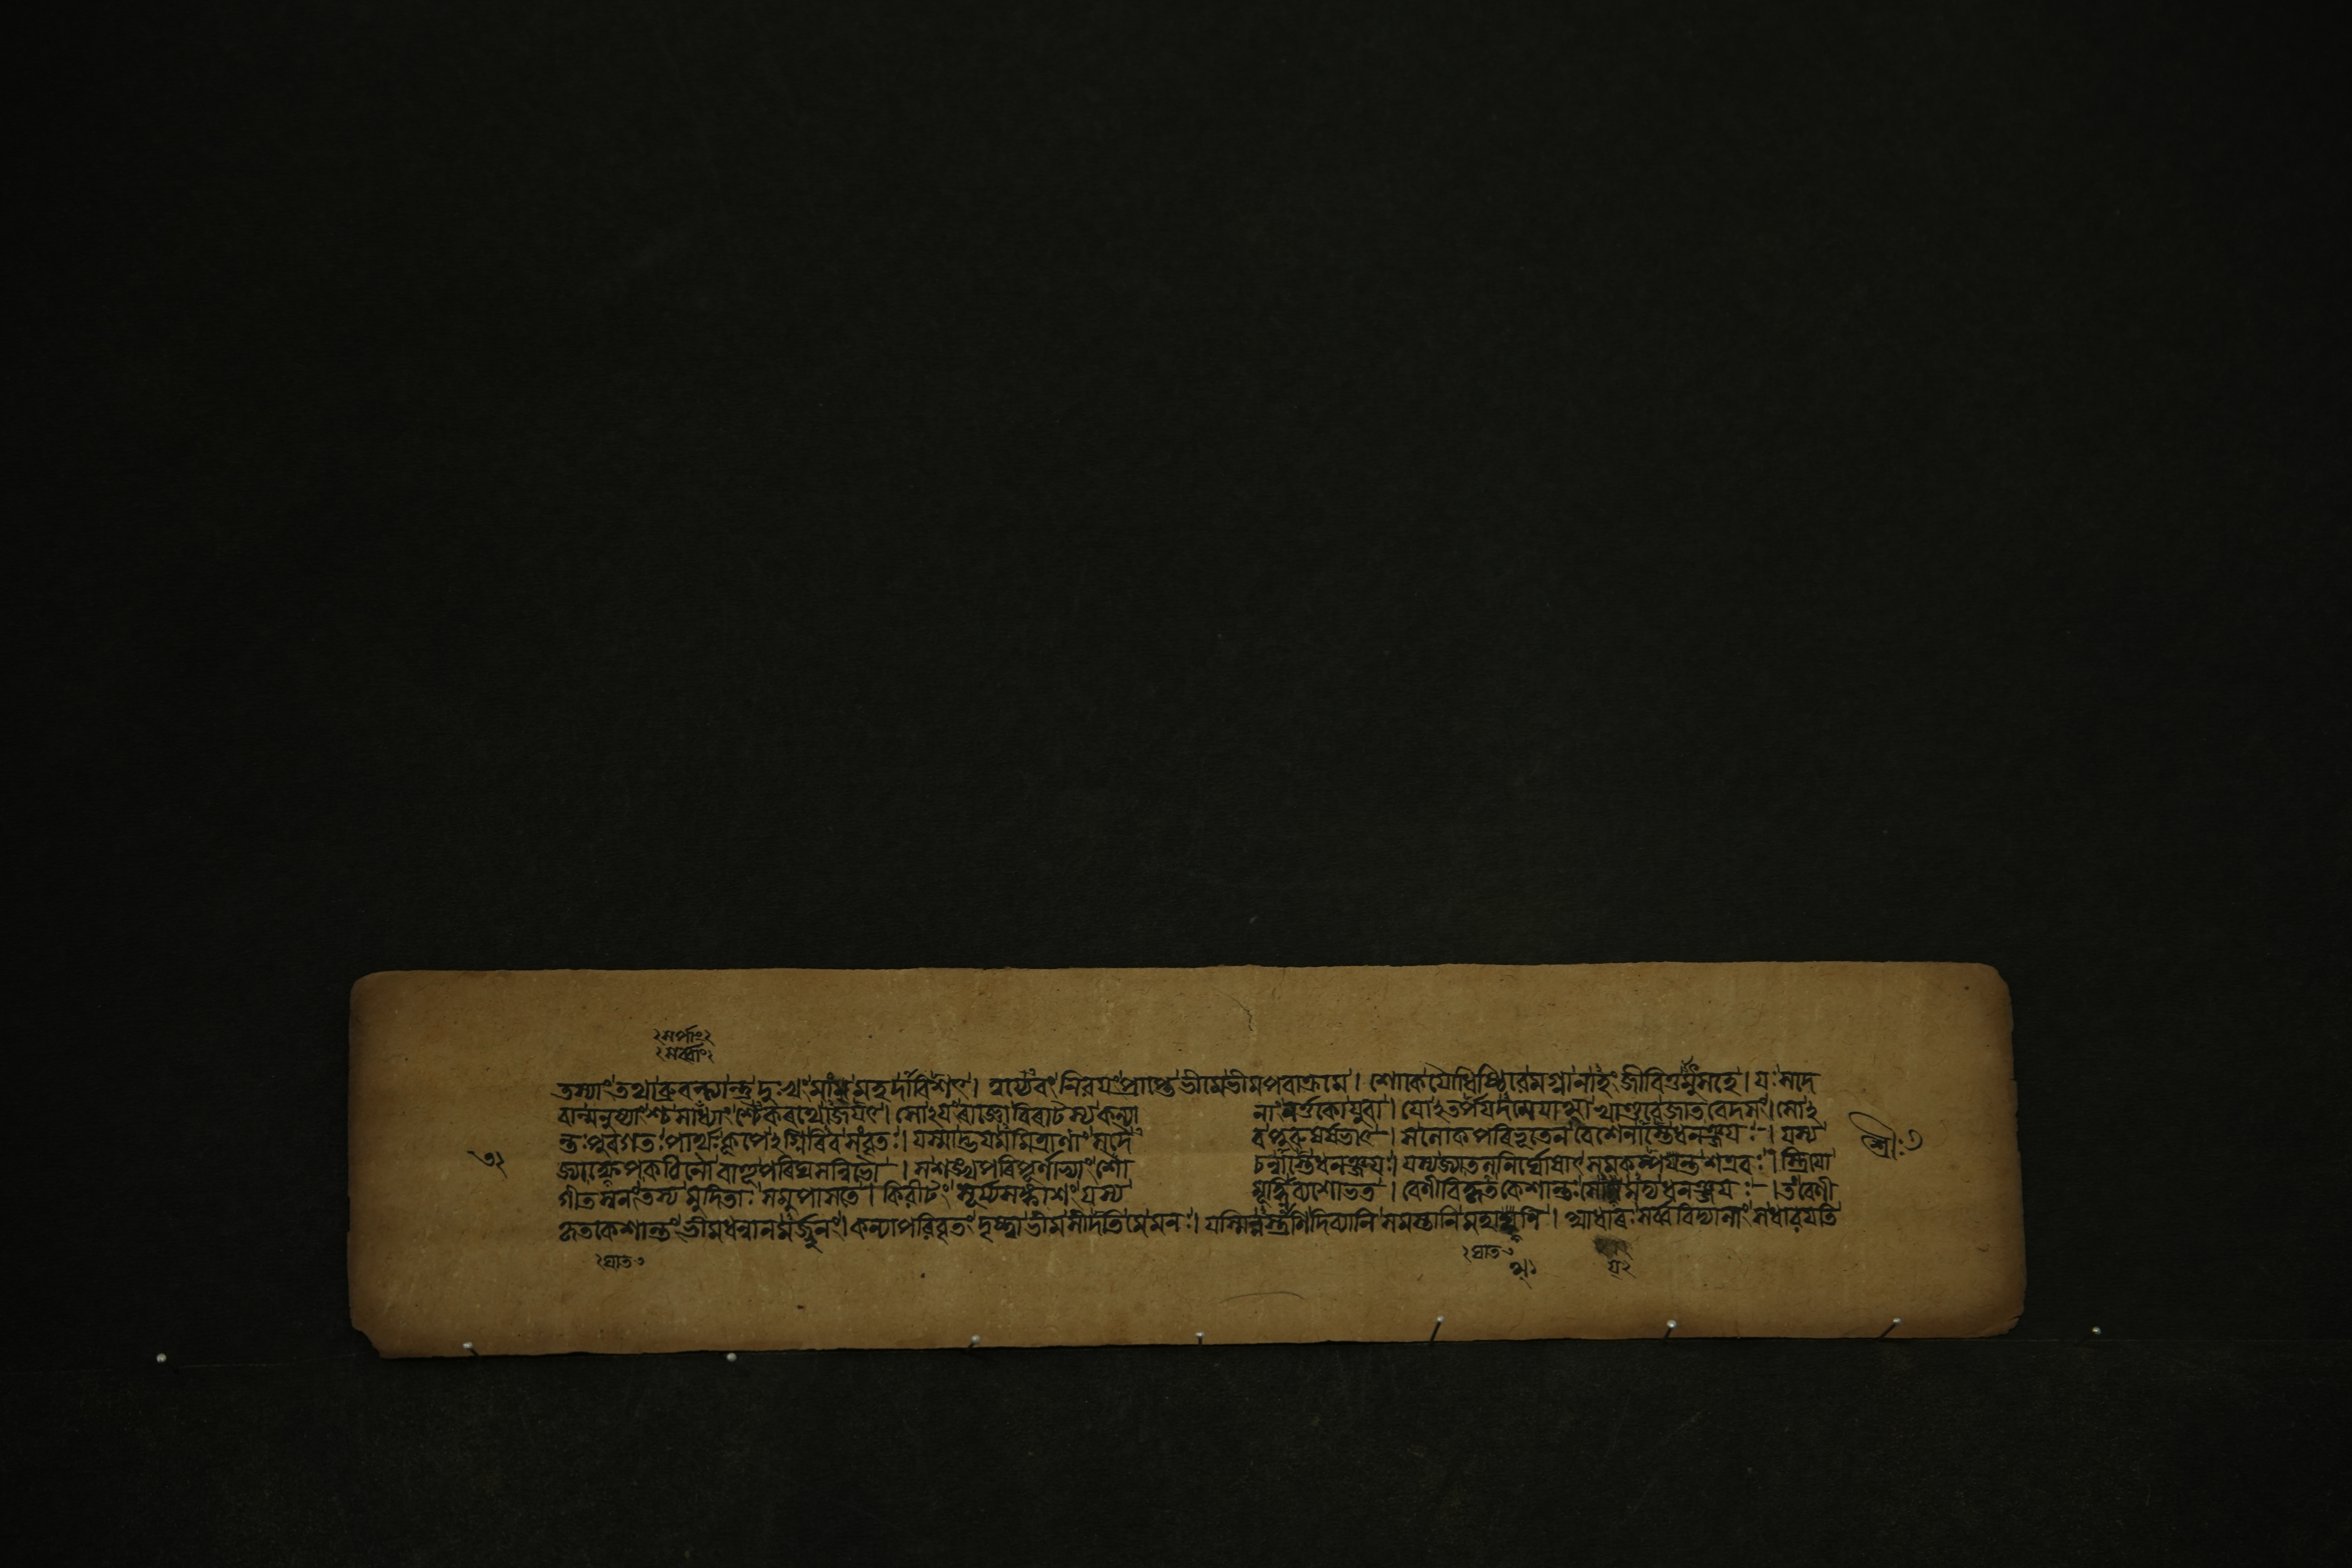 ৴সর্পাং২
৴সর্ব্বাং২
তস্যাং তথা ব্রুবন্ত্যান্তু দুঃখং মাং মহদাবিশৎ। নিরয়ং প্রাপ্তে ভীমে ভীমপৰাক্রমে। শোকে যৌধিষ্ঠিৰে মগ্না নাহং জীবিতুমুৎসহে। যঃ সদে
বান্মনুষ্যাংশ্চ সৰ্পাংশ্চৈকৰথোঽজয়ৎ। সোঽয়ং ৰাজ্ঞো বিৰাটস্য কন্যা নাং নর্ত্তকো যুবা। যোঽতর্পয়দমেয়াত্মা খাণ্ডবে জাতবেদসং। সোঽ
ন্তঃপুৰগতঃ পার্থঃ কূপেঽগ্নিৰিব সংবৃতঃ। যস্মাদ্ভয়মমিত্রাণাং সদৈ ব পুৰুষর্ষভাৎ। স লোকপৰিভূতেন বেশেনাস্তে ধনঞ্জয়ঃ। যস্য
জ্যাক্ষেপকঠিনৌ বাহূ পৰিঘসন্নিভৌ। স শঙ্খপৰিপূর্ণাভ্যাং শো চন্নাস্তে ধনঞ্জয়ঃ। যস্য জ্যাতলনির্ঘোষাৎ সমকম্পয়ন্ত শত্রবঃ। স্ত্রিয়ো
গীতস্বনং তস্য মুদিতাঃ সমুপাসতে। কিৰীটং সূর্য্যসঙ্কাশং যস্য মূর্দ্ধ্নি ব্যশোভত। বেণীবিকৃতকেশান্তঃ ধনঞ্জয়ঃ। তং বেণী
কৃতকেশান্তং ভীমধন্বানমর্জ্জুনং। কন্যাপৰিবৃতং দৃষ্ট্বা ভীম সীদতি মে মনঃ। যস্মিন্নস্ত্রাণি দিব্যানি সমস্তানি মহাত্মনি। আধাৰঃ সর্ব্ববিদ্যানাং স ধাৰয়তি
শ্রীঃ